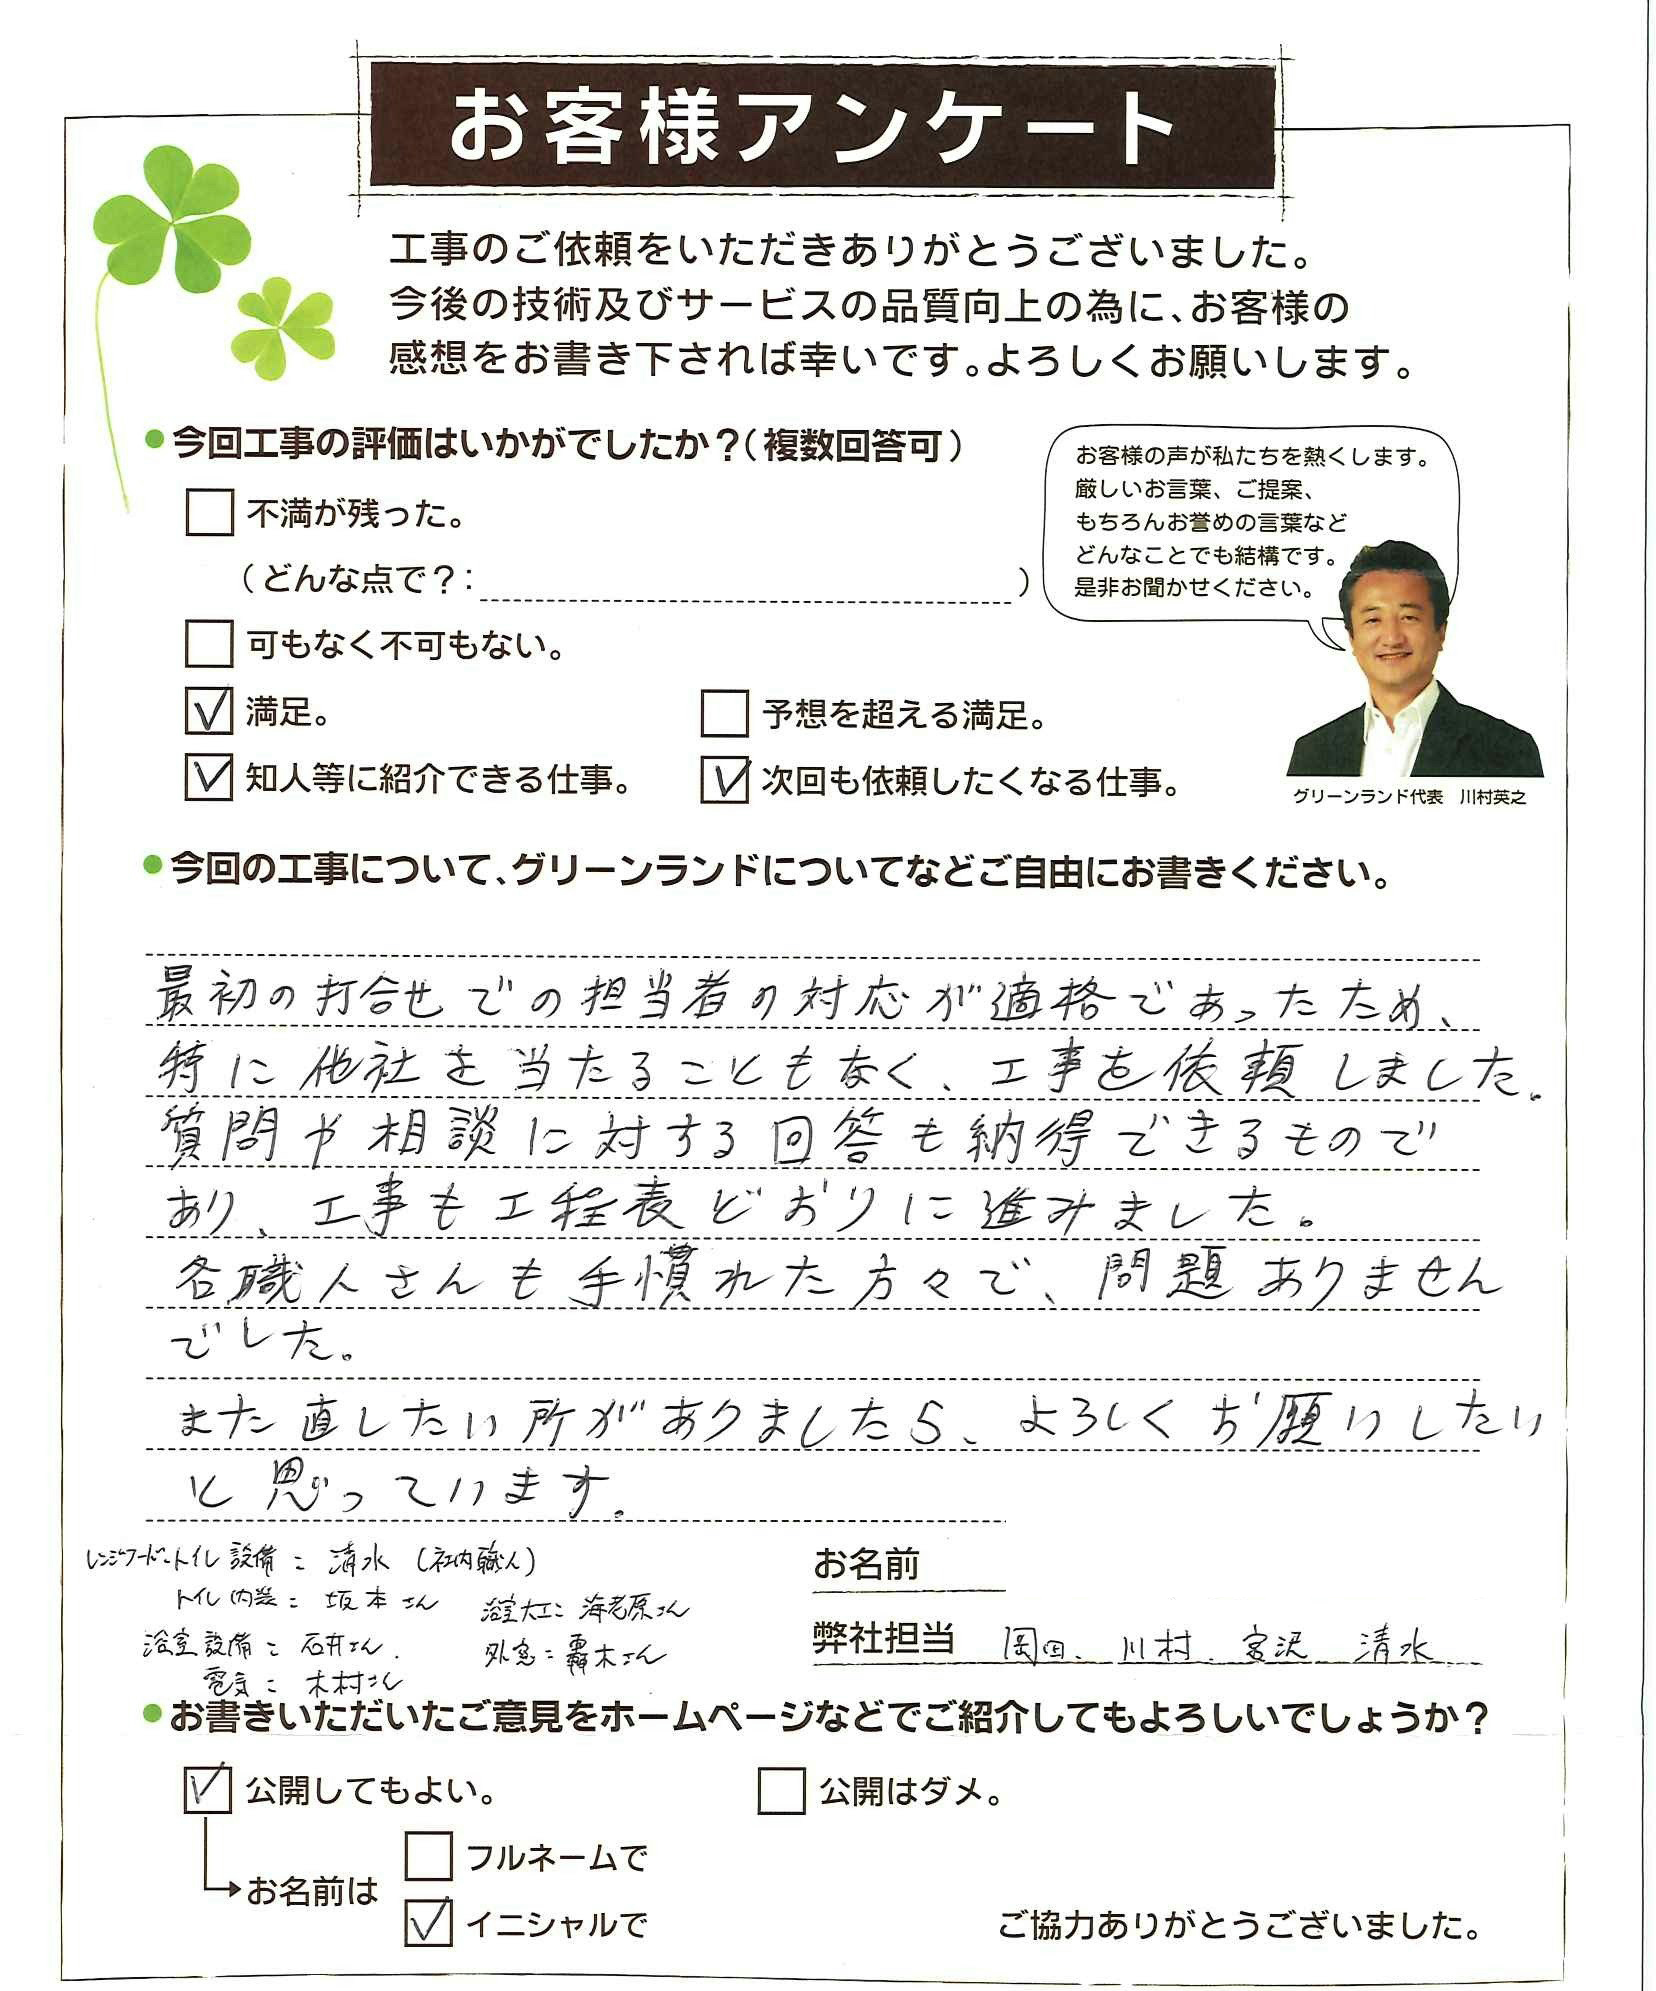 お客様アンケート
工事のご依頼をいただきありがとうございました。
今後の技術及びサービスの品質向上の為に、お客様の
感想をお書き下されば幸いです。よろしくお願いします。
今回工事の評価はいかがでしたか？（複数回答可）
不満が残った。
（どんな点で？： ）
可もなく不可もない。
満足。
予想を超える満足。
知人等に紹介できる仕事。
次回も依頼したくなる仕事。
お客様の声が私たちを熱くします。
厳しいお言葉、ご提案、
もちろんお誉めの言葉など
どんなことでも結構です。
是非お聞かせください。
グリーンランド代表 川村英之
今回の工事について、グリーンランドについてなどご自由にお書きください。
最初の打合せでの担当者の対応が適格であったため、
特に他社を当たることもなく、工事を依頼しました。
質問や相談に対する回答も納得できるもので
あり、工事も工程表どおりに進みました。
各職人さんも手慣れた方々で、問題ありません
でした。
また直したい所がありましたら、よろしくお願いしたい
と思っています。
レンジフード・トイレ設備＝清水（社内職人）
トイレ内装＝坂本さん
浴室大工＝海老原さん
浴室設備＝石井さん
外窓＝轟木さん
電気＝木村さん
お名前
弊社担当 岡田、川村、宮沢 清水
お書きいただいたご意見をホームページなどでご紹介してもよろしいでしょうか？
公開してもよい。
公開はダメ。
お名前は
フルネームで
イニシャルで
ご協力ありがとうございました。